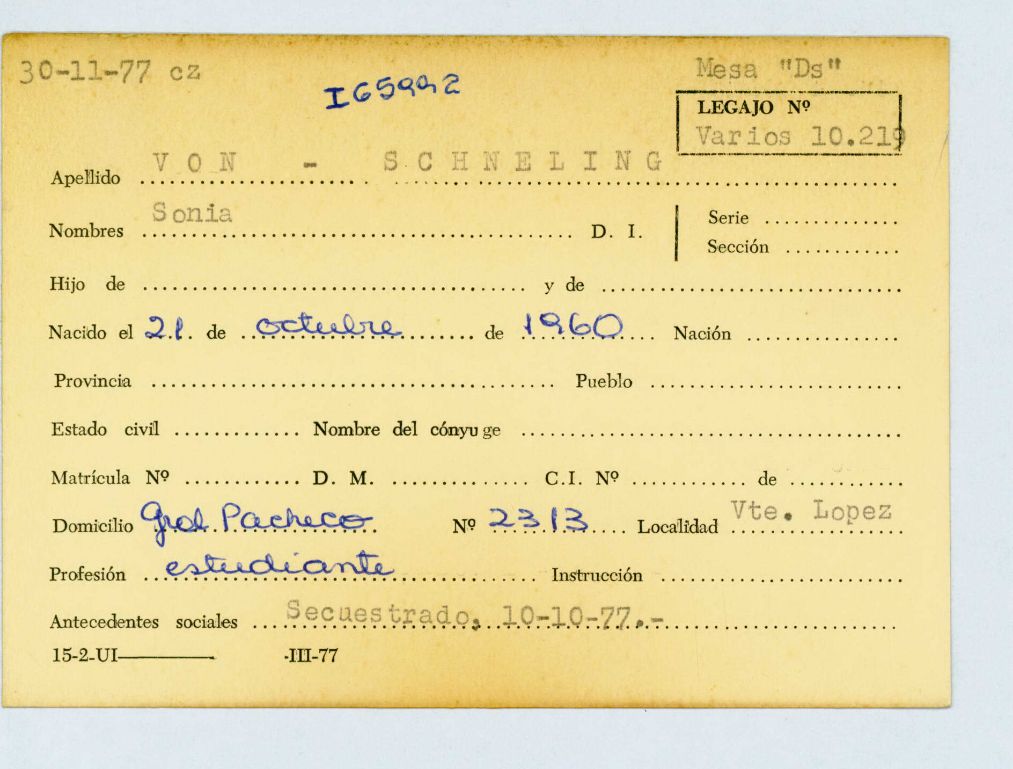 30-11-77 cz
I65992
Mesa "Ds"
LEGAJO Nº
Varios 10.219
Apellido VON - SCHNELING
Nombres Sonia D. I. Serie
Sección
Hijo de y de
Nacido el 21 de octubre de 1960 Nación
Provincia Pueblo
Estado civil Nombre del cónyuge
Matrícula Nº D. M. C.I. Nº de
Domicilio Gral Pacheco Nº 2313 Localidad Vte. Lopez
Profesión estudiante Instrucción
Antecedentes sociales Secuestrado, 10-10-77.-
15-2-UI -III-77